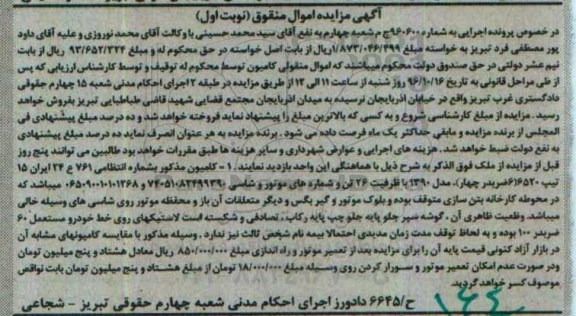 آگهی مزایده اموال منقول (نوبت اول)
در خصوص پرونده اجرایی به شماره ۹۶۰۶۰۰ج م شعبه چهارم به نفع آقای سید محمد حسینی با وکالت آقای محمد نوروزی و علیه آقای داود
پور مصطفی فرد تبریز به خواسته مبلغ ۱/۸۷۳/۰۴۶/۴۹۹ریال از بابت اصل خواسته در حق محکوم له و مبلغ ۹۳/۶۵۲/۳۲۴ ریال از بابت
نیم عشر دولتی در حق صندوق دولت محکوم میباشند که اموال منقولی کامیون توسط محکوم له توقیف و توسط کارشناس ارزیابی که پس
از طی مراحل قانونی به تاریخ ۹۶/۱۰/۱۶ روز شنبه از ساعت ۱۱ الی ۱۲ از طریق مزایده در طبقه ۲ اجرای احکام مدنی شعبه ۱۵ چهارم حقوقی
دادگستری غرب تبریز واقع در خیابان آذربایجان نرسیده به میدان آذربایجان مجتمع قضایی شهید قاضی طباطبایی تبریز بفروش خواهد
رسید. مزایده از مبلغ کارشناسی شروع و به کسی که بالاترین مبلغ را پیشنهاد نماید فروخته خواهد شد و ده درصد مبلغ پیشنهادی فی
المجلس از برنده مزایده و مابقی حداکثر یک ماه فرصت داده می شود . برنده مزایده به هر عنوان انصرف نماید ده درصد مبلغ پیشنهادی
به نفع دولت ضبط خواهد شد. هزینه های اجرایی و عوارض شهرداری و سایر هزینه ها طبق مقررات خواهد بود طالبین می توانند پنج روز
قبل از مزایده از ملک فوق الذکر به شرح ذیل با هماهنگی این واحد بازدید نمایند. ۱ - کامیون مذکور بشماره انتظامی ۷۶۱ ع ۲۴ ایران ۱۵
تیپ ۶۱۶۵۲۰ضربدر چهار)، مدل ۱۳۹۰ با ظرفیت ۲۶ تن و شماره های موتور و شاسی ۷۴۰۵۱۰۸۲۴۹۹۳۹۰ و ۰۶۵۰۹۰۰۱۰۱۰۱۲۶۸ میباشد که
در محوطه کارخانه بتن سازی متوقف بوده و بلوک موتور و گیر بگس و دیگر متعلقات آن باز و محفظه موتور روی شاسی های وسیله خالی
میباشد. وضعیت ظاهری آن . گوشه سپر جلو پایه جلو چپ پایه رکاب . تصادفی و شکسته است لاستیکهای روی خط خودرو مستعمل ۶۰
ضربدر ۱۰۰ بوده و به لحاظ توقف مدت زمان مدیدی احتمالا بیمه نام شخص ثالث نیز ندارد . وسیله مذکور با مقایسه کامیونهای مشابه آن
در بازار آزاد کنونی قیمت پایه آن را برای مزایده بعد از تعمیر موتور و راه اندازی مبلغ ۸۵۰/۰۰۰/۰۰۰ ریال معادل هشتاد و پنج میلیون تومان
ودر صورت عدم امکان تعمیر موتور و سوار کردن روی وسیله مبلغ ۱۸/۰۰۰/۰۰۰ تومان از مبلغ هشتاد و پنج میلیون تومان بابت نواقص
موصوف کسر خواهد گردید.
ح/۶۶۴۵ دادورز اجرای احکام مدنی شعبه چهارم حقوقی تبریز - شجاعی